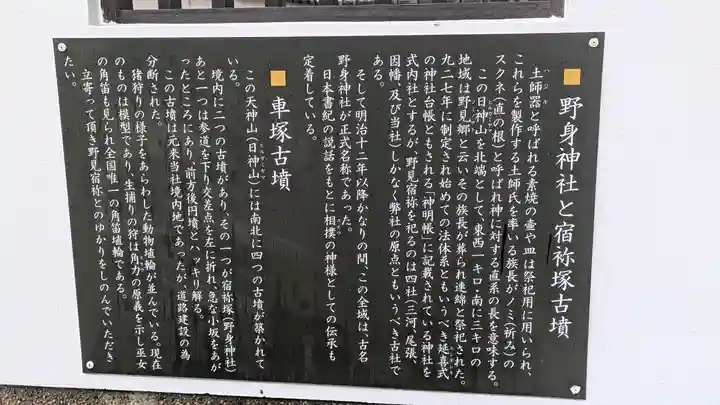 野身神社と宿祢塚古墳
土師器と呼ばれる素焼の壷や皿は祭祀用に用いられ、
これらを製作する土師氏を率いる族長がノミ(祈み)の
スクネ(直の根)と呼ばれ神に対する直系の長を意味する。
この日神山を北端として、東西一キロ・南に三キロの
地域は野見郷と云いその族長が葬られ連綿と祭祀された。
九二七年に制定され始めての法体系ともいうべき延喜式
の神社台帳ともされる「神明帳」に記載されている神社を
式内社とするが、野見宿祢を祀るのは四社(三河、尾張、
因幡、及び当社)しかなく弊社の原点ともいうべき古社で
ある。
そして明治十二年以降かなりの間、この全域は、古名
野身神社が正式名称であった。
日本書紀の説話をもとに相撲の神様としての伝承も
定着している。
車塚古墳
この天神山(日神山)には南北に四つの古墳が築かれて
いる。
境内に二つの古墳があり、その一つが宿祢塚(野身神社)
あと一つは参道を下り交差点を左に折れ、急な小坂をあが
ったところにあり、前方後円墳とハッキリ解る。
この古墳は元来当社境内地であったが、道路建設の為
分断された。
猪狩りの様子をあらわした動物埴輪が並んでいる。現在
のものは模型であり、生捕りの狩は角力の原義を示し巫女
の角笛も見られ全国唯一の角笛埴輪である。
立寄って頂き野見宿祢とのゆかりをしのんでいただき
たい。